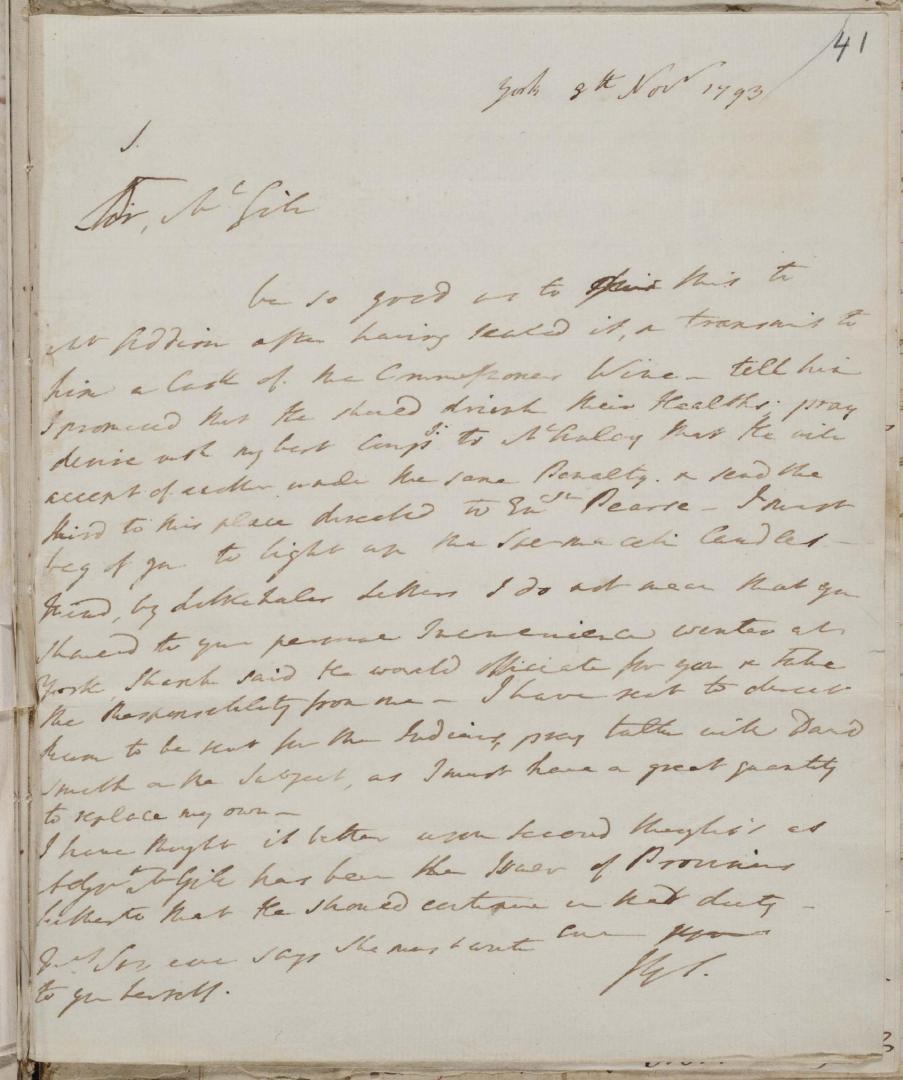 41
York 8th Novr 1793
S.
Sir, Mc Gill
be so good as to this to
Mr Addison after having sealed it, & transmit to
him a Cask of the Commissioners Wine – tell him
I promised that He should drink their Healths; pray
desire with my best Compts to McAulay that He will
accept of another under the same Penalty. & send the
third to this place directed to Ensn Pearse – I must
beg of you to light up the Spermaceti Candles –
Mind, by Littlehales Letters I do not mean that you
should to your personal Inconvenience winter at
York, Shank said He would officiate for you & take
the Responsibility from me – I have sent to direct
Rum to be sent for the Indians, pray talk with David
Smith on the Subject, as I must have a great quantity
to replace my own –
I have thought it better upon second thoughts as
Adjnt McGill has been the Issuer of Provisions
hitherto that He should continue in that duty –
says She must write
to you herself.
JGS.